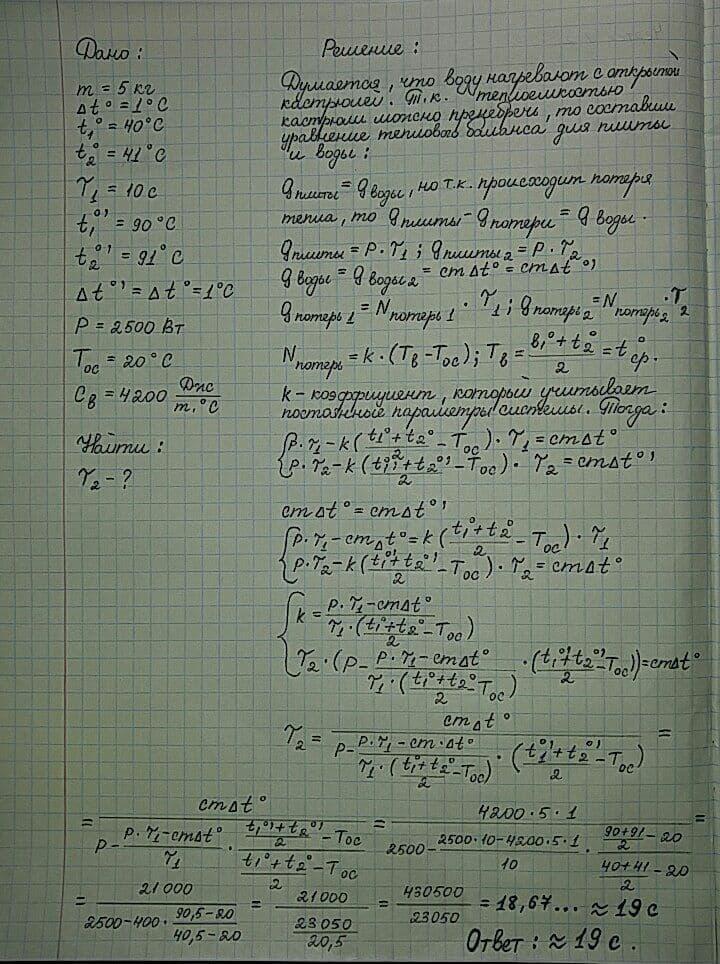 Дано :
m = 5 кг
Δt° = 1°C
t₁° = 40°C
t₂° = 41°C
τ₁ = 10 с
t₁°' = 90°C
t₂°' = 91°C
Δt°' = Δt° = 1°C
P = 2500 Вт
Tос = 20°C
Cв = 4200 Дж/m,°C
Найти :
τ₂ - ?
Решение :
Думается, что воду нагревают с открытой
кастрюлей. Т.к. теплоемкостью
кастрюли можно пренебречь, то составим
уравнение теплового баланса для плиты
и воды :
qплиты = qводы, но т.к. происходит потеря
тепла, то qплиты - qпотери = qводы.
qплиты = P·τ₁ ; qплиты₂ = P·τ₂
qводы = qводы₂ = cmΔt° = cmΔt°'
qпотерь₁ = Nпотерь₁ · τ₁ ; qпотерь₂ = Nпотерь₂ · τ₂
Nпотерь = k·(Tв - Tос) ; Tв = (t₁° + t₂°)/2 = t°ср.
k - коэффициент, который учитывает
постоянные параметры системы. Тогда :
{P·τ₁ - k((t₁° + t₂°)/2 - Tос)·τ₁ = cmΔt°
P·τ₂ - k((t₁°' + t₂°')/2 - Tос)·τ₂ = cmΔt°'
cmΔt° = cmΔt°'
{P·τ₁ - cmΔt° = k((t₁° + t₂°)/2 - Tос)·τ₁
P·τ₂ - k((t₁°' + t₂°')/2 - Tос)·τ₂ = cmΔt°
{k = (P·τ₁ - cmΔt°)/(τ₁·((t₁° + t₂°)/2 - Tос))
τ₂·(P - (P·τ₁ - cmΔt°)/(τ₁·((t₁° + t₂°)/2 - Tос))·((t₁°' + t₂°')/2 - Tос)) = cmΔt°
τ₂ = cmΔt°/(P - (P·τ₁ - cm·Δt°)/(τ₁·((t₁° + t₂°)/2 - Tос))·((t₁°' + t₂°')/2 - Tос)) =
= cmΔt°/(P - (P·τ₁ - cmΔt°)/τ₁ · ((t₁°' + t₂°')/2 - Tос)/((t₁° + t₂°)/2 - Tос)) = 4200·5·1/(2500 - (2500·10 - 4200·5·1)/10 · ((90+91)/2 - 20)/((40+41)/2 - 20)) =
= 21000/(2500 - 400·(90,5 - 20)/(40,5 - 20)) = 21000/(23050/20,5) = 430500/23050 = 18,67... ≈ 19 с
Ответ : ≈ 19 с.